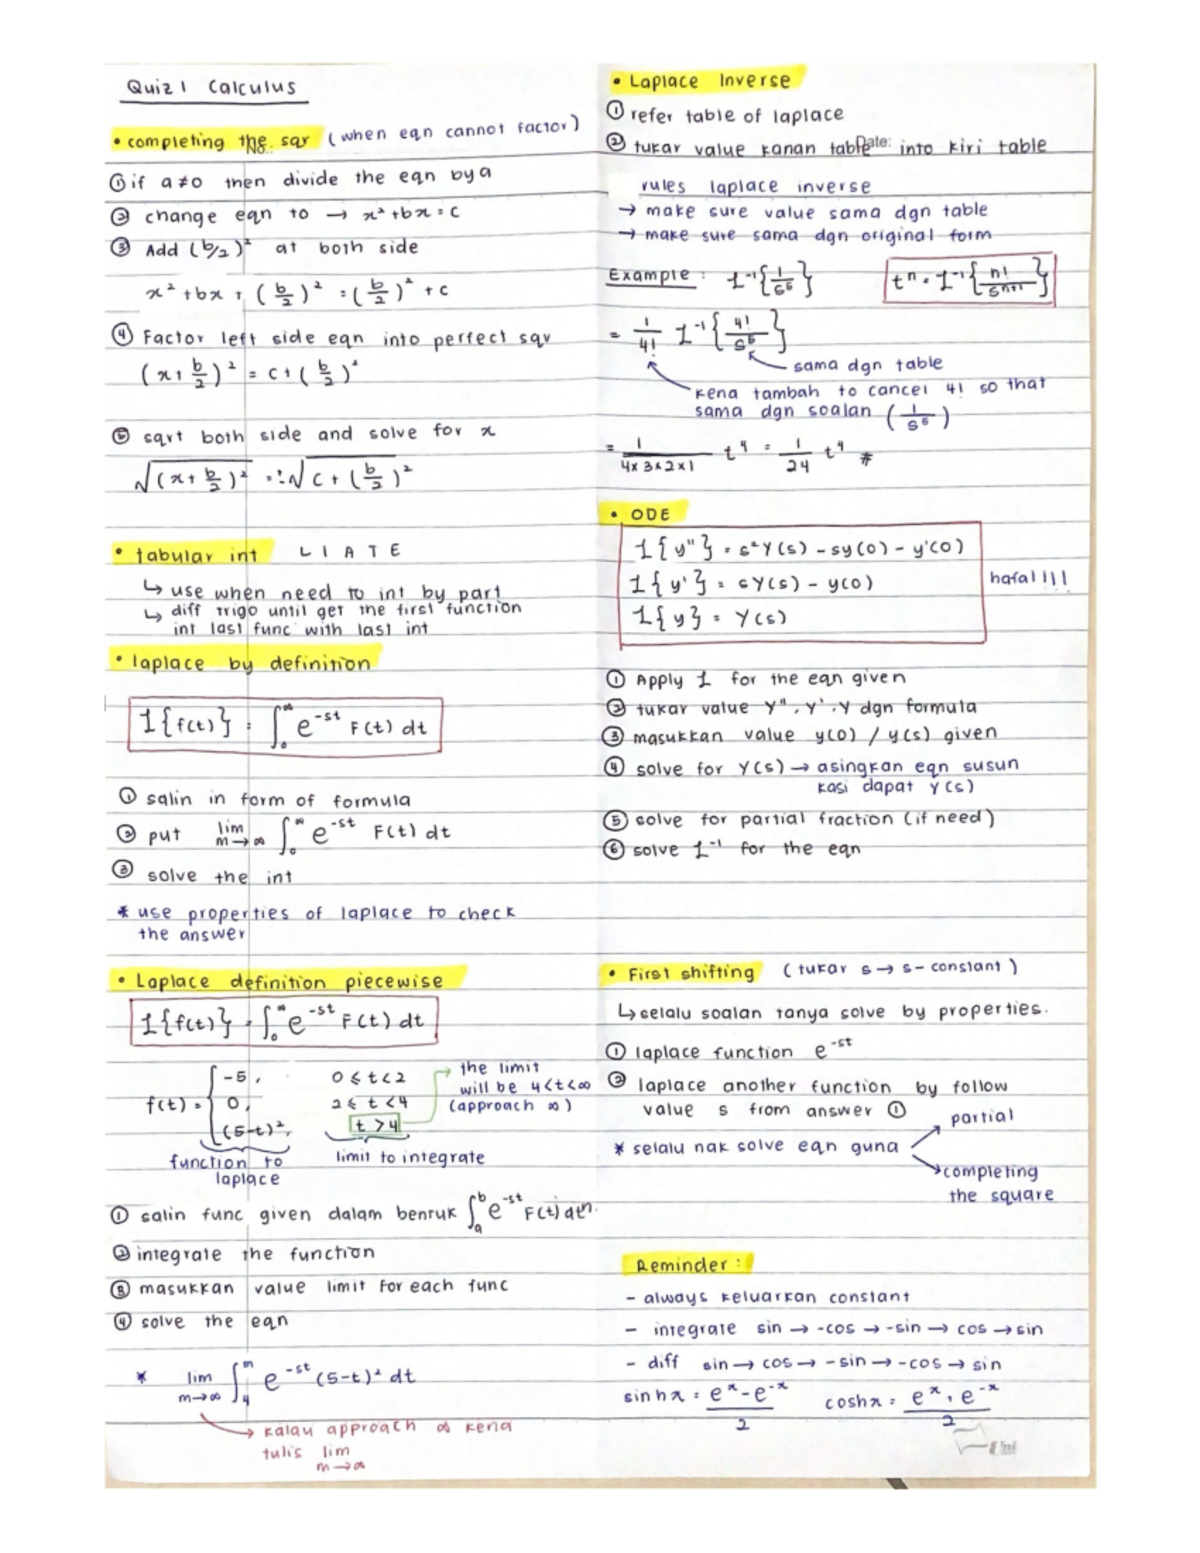 Quiz 1 Calculus
• completing the sqr (when eqn cannot factor)
No.:
① if a≠0 then divide the eqn by a
② change eqn to → x²+bx=c
③ Add (b/2)² at both side
x²+bx+(b/2)²=(b/2)²+c
④ Factor left side eqn into perfect sqr
(x+b/2)²=c+(b/2)²
⑤ sqrt both side and solve for x
√(x+b/2)² = ±√c+(b/2)²
• tabular int L I A T E
↳ use when need to int by part
↳ diff trigo until get the first function
int last func with last int
• laplace by definition
L{f(t)} = ∫₀^∞ e^-st F(t) dt
① salin in form of formula
② put lim m→∞ ∫₀^∞ e^-st F(t) dt
③ solve the int
* use properties of laplace to check
the answer
• Laplace definition piecewise
L{f(t)} = ∫₀^∞ e^-st F(t) dt
f(t) = { -5, 0≤t<2
0, 2≤t<4
(5-t)², t>4
the limit
will be 4<t<∞
(approach ∞)
function to
laplace
limit to integrate
① salin func given dalam bentuk ∫ₐᵇ e^-st F(t) dtⁿ.
② integrate the function
③ masukkan value limit for each func
④ solve the eqn
* lim m→∞ ∫₄^m e^-st (5-t)² dt
→ kalau approach ∞ kena
tulis lim
m→∞
• Laplace Inverse
① refer table of laplace
Date:
② tukar value kanan table into kiri table
rules laplace inverse
→ make sure value sama dgn table
→ make sure sama dgn original form
Example: L⁻¹{1/s⁵} tⁿ = L⁻¹{n!/sⁿ⁺¹}
= 1/4! L⁻¹{4!/s⁵}
sama dgn table
kena tambah to cancel 4! so that
sama dgn soalan (1/s⁵)
= 1/4x3x2x1 t⁴ = 1/24 t⁴ #
• ODE
L{y"} = s²Y(s) - sy(0) - y'(0)
L{y'} = sY(s) - y(0)
L{y} = Y(s)
hafal!!!
① Apply L for the eqn given
② tukar value Y", Y', Y dgn formula
③ masukkan value y(0) / y(s) given
④ solve for Y(s) → asingkan eqn susun
kasi dapat Y(s)
⑤ solve for partial fraction (if need)
⑥ solve L⁻¹ for the eqn
• First shifting (tukar s → s-constant)
↳ selalu soalan tanya solve by properties.
① laplace function e^-st
② laplace another function by follow
value s from answer ①
* selalu nak solve eqn guna
partial
completing
the square
Reminder:
- always keluarkan constant
- integrate sin → -cos → -sin → cos → sin
- diff sin → cos → -sin → -cos → sin
sinhx = e^x - e^-x / 2 coshx = e^x + e^-x / 2